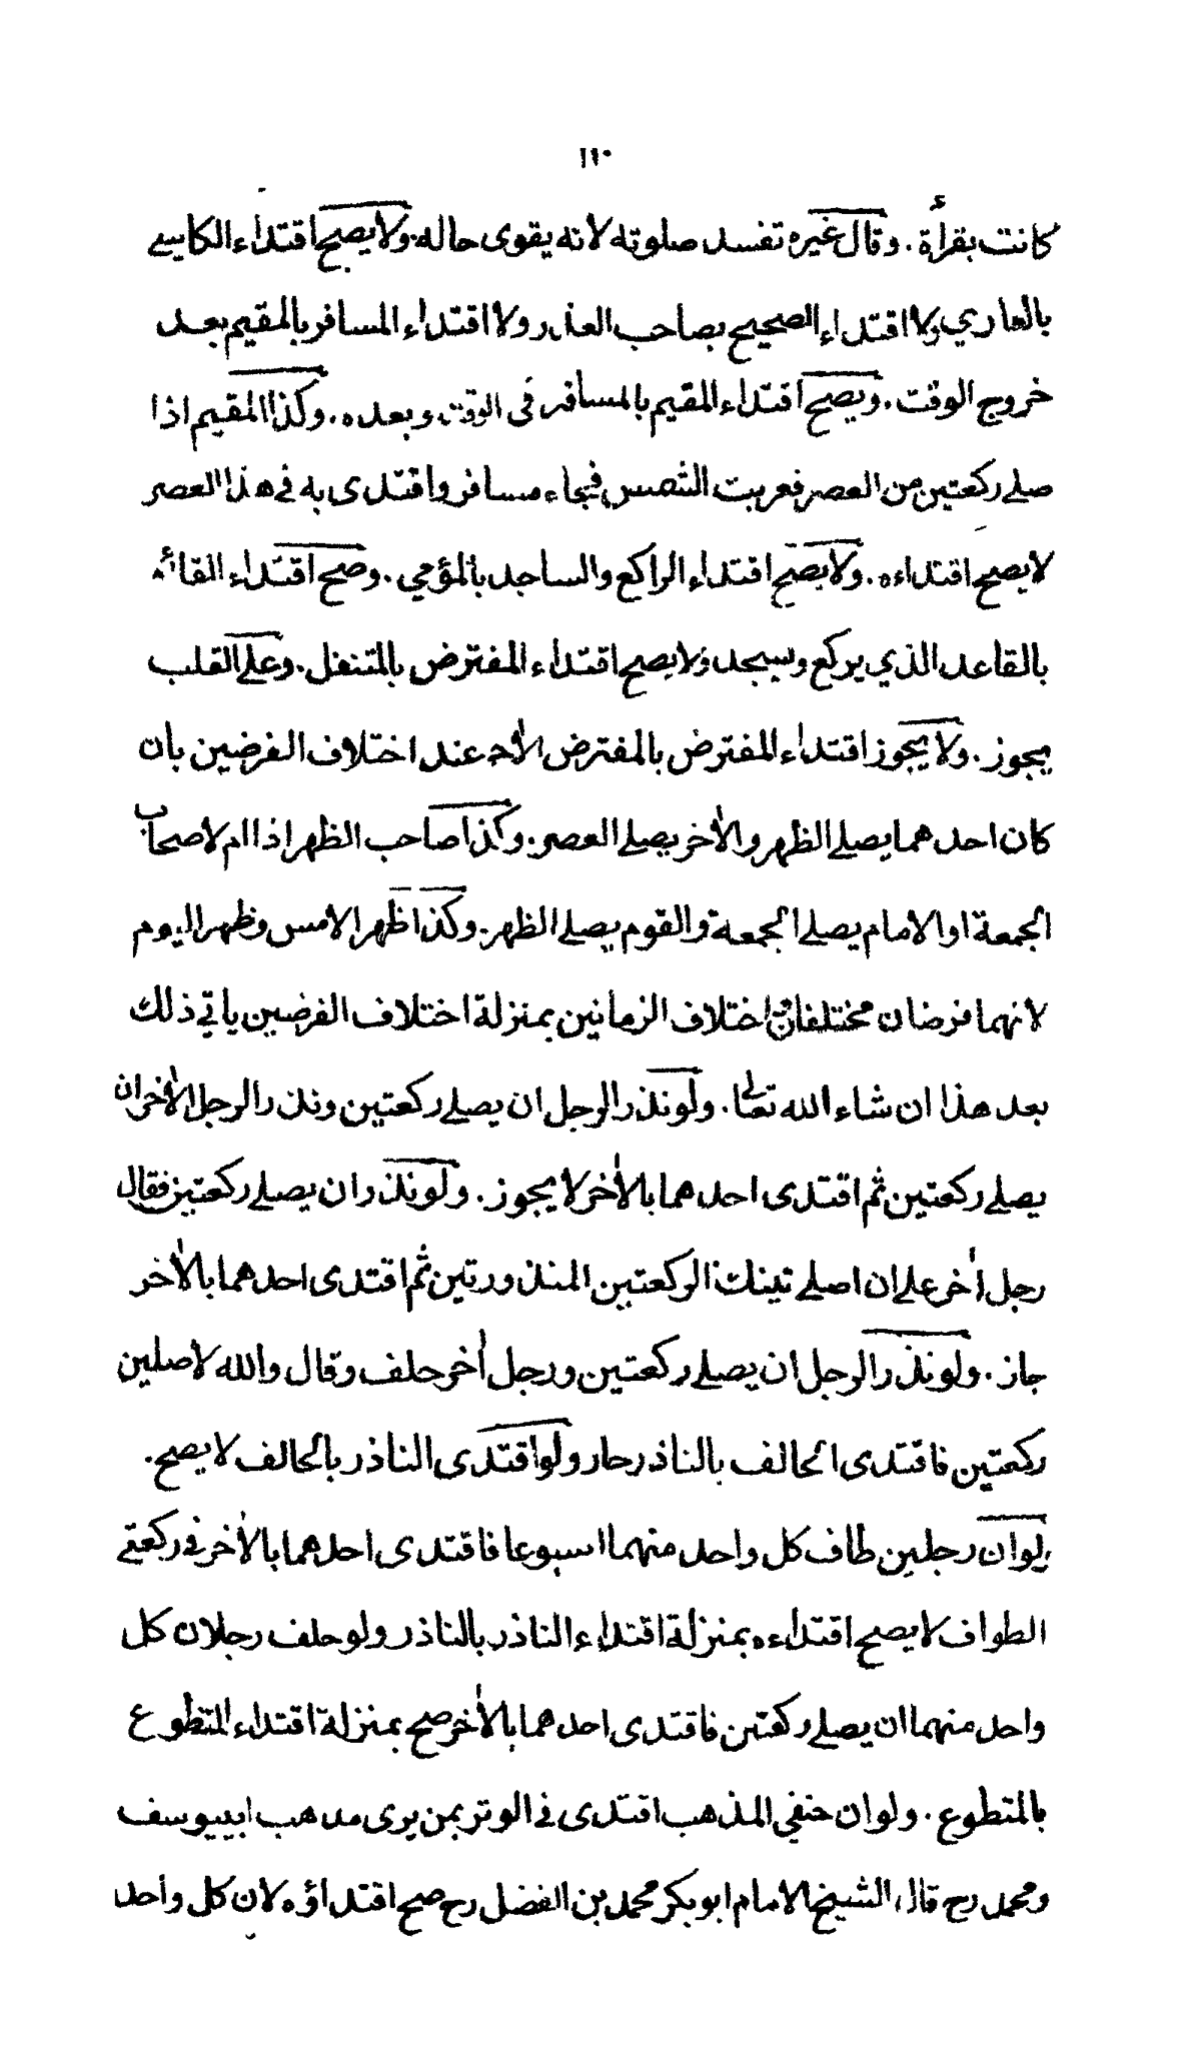 ١١٠
كانت بقرأة . وقال غيره تفسد صلوته لانه يقوى حاله . ولا يصح اقتداء الكاسي
بالعاري ولا اقتداء الصحيح بصاحب العذر ولا اقتداء المسافر بالمقيم بعد
خروج الوقت . ويصح اقتداء المقيم بالمسافر في الوقت وبعده . وكذا المقيم اذا
صلے ركعتين من العصر فغربت الشمس فجاء مسافر واقتدى به في هذا العصر
لا يصح اقتداءه . ولا يصح اقتداء الراكع والساجد بالمؤمي . وصح اقتداء القائم
بالقاعد الذي يركع ويسجد ولا يصح اقتداء المفترض بالمتنفل . وعلے القلب
يجوز . ولا يجوز اقتداء المفترض بالمفترض الأخر عند اختلاف الفرضين بان
كان احدهما يصلے الظهر والأخر يصلے العصر . وكذا صاحب الظهر اذا ام لاصحاب
الجمعة او الامام يصلے الجمعة والقوم يصلے الظهر . وكذا ظهر الامس وظهر اليوم
لانهما فرضان مختلفان اختلاف الزمانين بمنزلة اختلاف الفرضين ياتي ذلك
بعد هذا ان شاء الله تعالى . ولو نذر الرجل ان يصلے ركعتين ونذر الرجل الأخر ان
يصلے ركعتين ثم اقتدى احدهما بالأخر لا يجوز . ولو نذر ان يصلے ركعتين فقال
رجل أخر علے ان اصلے تينك الركعتين المنذورتين ثم اقتدى احدهما بالأخر
جاز . ولو نذر الرجل ان يصلے ركعتين ورجل أخر حلف وقال والله لاصلين
ركعتين فاقتدى الحالف بالناذر جاز ولو اقتدى الناذر بالحالف لا يصح .
ولو ان رجلين طاف كل واحد منهما اسبوعا فاقتدى احدهما بالأخر في ركعتي
الطواف لا يصح اقتداءه بمنزلة اقتداء الناذر بالناذر ولو حلف رجلان كل
واحد منهما ان يصلے ركعتين فاقتدى احدهما بالأخر صح بمنزلة اقتداء المتطوع
بالمتطوع . ولو ان حنفي المذهب اقتدى في الوتر بمن يرى مذهب ابييوسف
ومحمد رح قال الشيخ الامام ابو بكر محمد بن الفضل رح صح اقتداؤه لان كل واحد